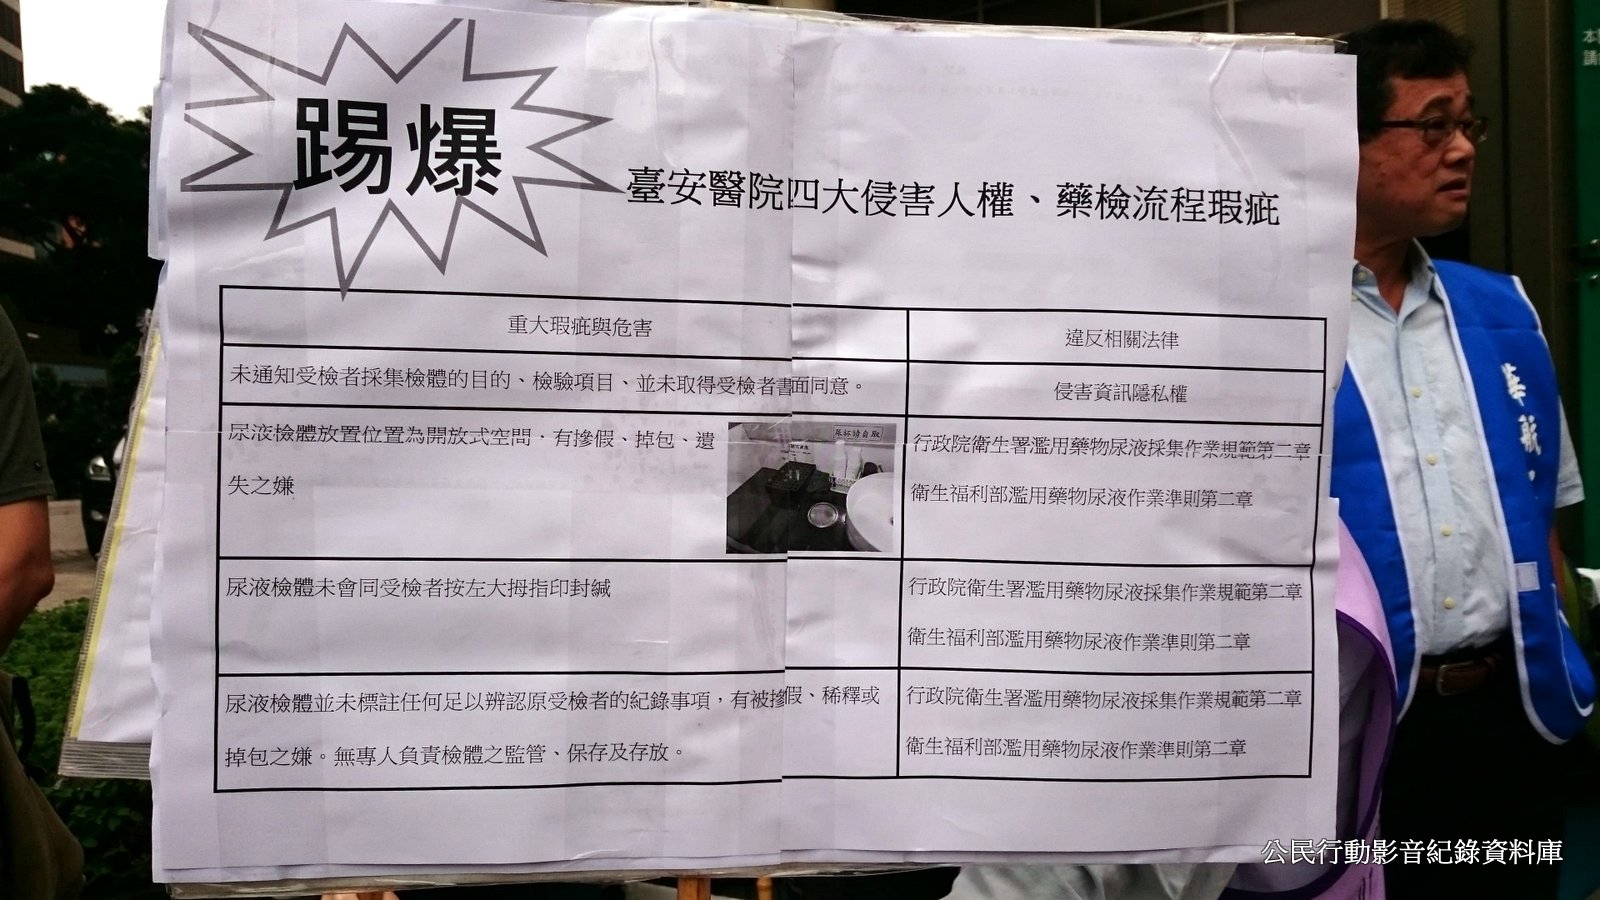 踢爆
臺安醫院四大侵害人權、藥檢流程瑕疵
重大瑕疵與危害
違反相關法律
未通知受檢者採集檢體的目的、檢驗項目、並未取得受檢者書面同意。
侵害資訊隱私權
尿液檢體放置位置為開放式空間，有摻假、掉包、遺
失之嫌
尿杯請自取
行政院衛生署濫用藥物尿液採集作業規範第二章
衛生福利部濫用藥物尿液作業準則第二章
尿液檢體未會同受檢者按左大拇指印封緘
行政院衛生署濫用藥物尿液採集作業規範第二章
衛生福利部濫用藥物尿液作業準則第二章
尿液檢體並未標註任何足以辨認原受檢者的紀錄事項，有被摻假、稀釋或
掉包之嫌。無專人負責檢體之監管、保存及存放。
行政院衛生署濫用藥物尿液採集作業規範第二章
衛生福利部濫用藥物尿液作業準則第二章
華航
公民行動影音紀錄資料庫